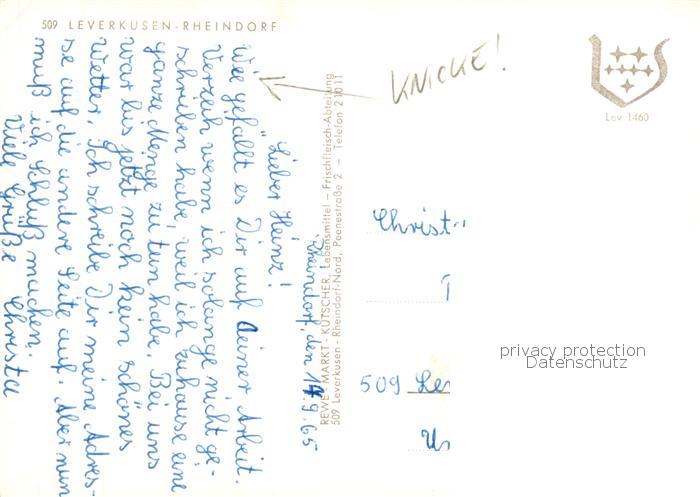 509 LEVERKUSEN-RHEINDORF
KNICKE!
Lev 1460
Rheindorf, den 14.9.65
Lieber Heinz!
Wie gefällt es Dir auf deiner Arbeit.
Verzeih wenn ich solange nicht ge-
schrieben habe, weil ich zuhause eine
ganze Menge zu tun habe. Bei uns
war bis jetzt noch kein schönes
Wetter. Ich schreibe Dir meine Adres-
se auf die andere Seite auf. Aber nun
muß ich Schluß machen.
Viele Grüße Christa
REWE-MARKT - KUTSCHER, Lebensmittel - Frischfleisch-Abteilung
509 Leverkusen - Rheindorf-Nord, Peenestraße 2 - Telefon 21011
Christ
509 Le
privacy protection
Datenschutz